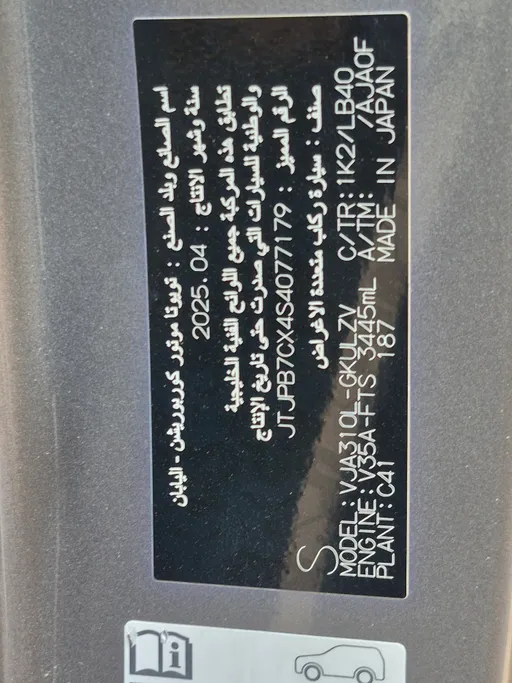 اسم الصانع وبلد الصنع : تويوتا موتور كوربوريشن - اليابان
سنة وشهر الانتاج : 2025.04
تطابق هذه المركبة جميع اللوائح الفنية الخليجية
والوطنية للسيارات التي صدرت حتى تاريخ الإنتاج
الرقم المميز : JTJPB7CX4S4077179
صنف : سيارة ركاب متعددة الاغراض
S
MODEL: VJA310L-GKULZV C/TR: 1K2/LB40
ENGINE: V35A-FTS 3445mL A/TM: /AJA0F
PLANT: C41 187 MADE IN JAPAN
i